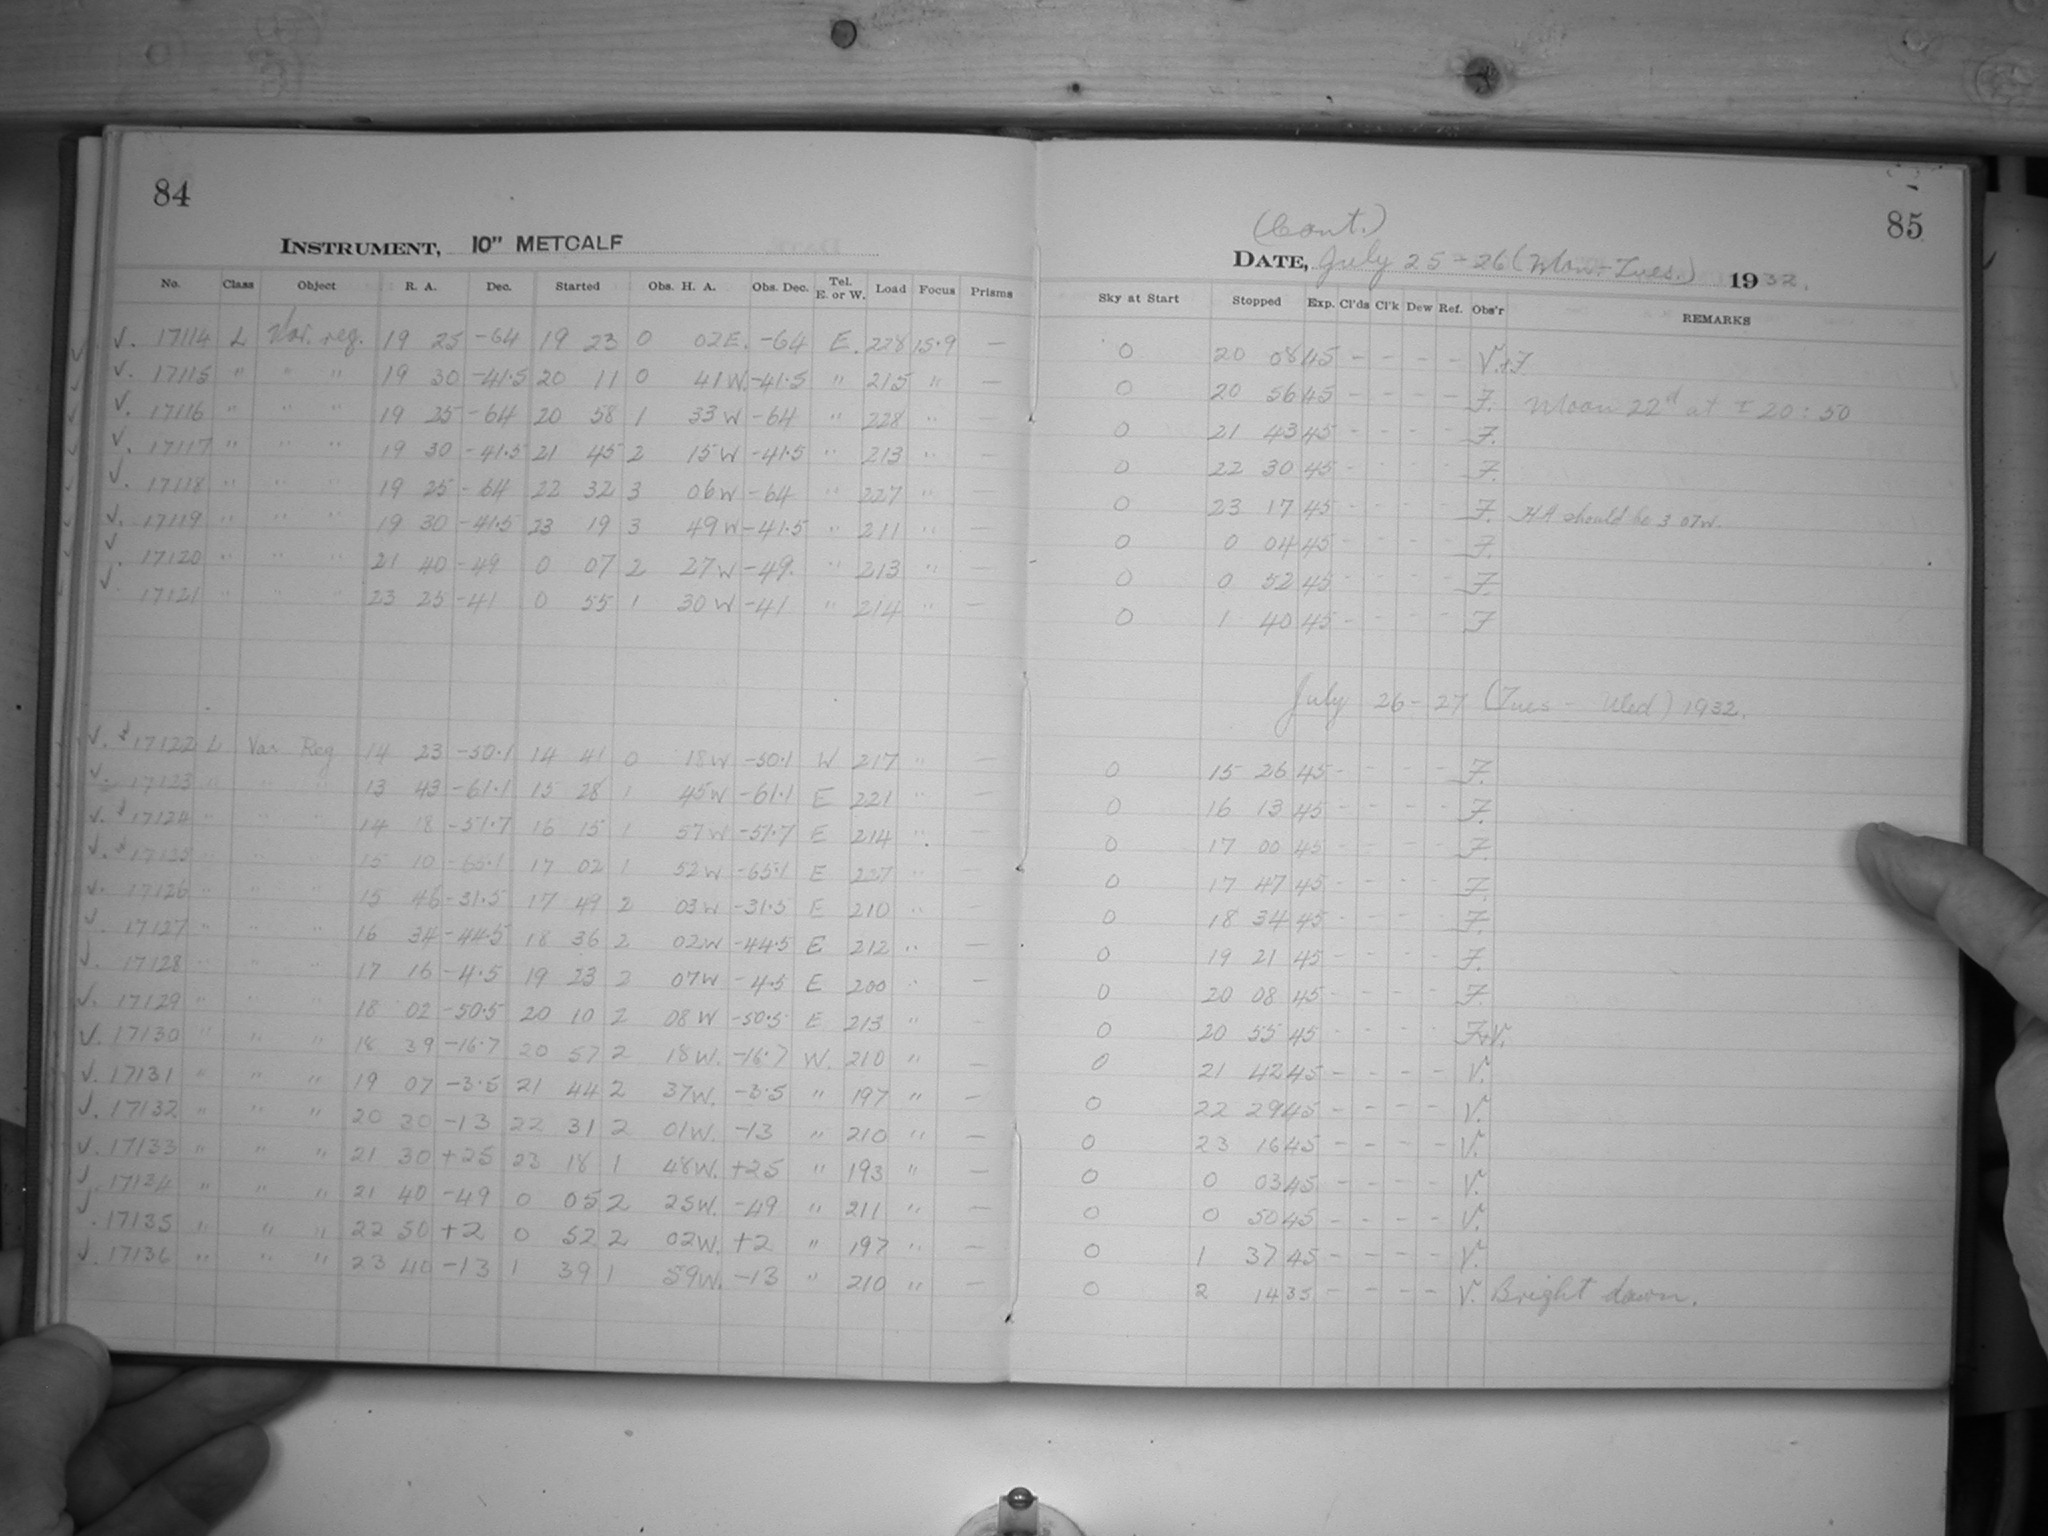 84
INSTRUMENT, 10" METCALF
No. Class Object R. A. Dec. Started Obs. H. A. Obs. Dec. Tel. E. or W. Load Focus Prisms
√. 17114 L Var. reg. 19 25 -64 19 23 0 02E. -64 E. 228 15.9 —
√. 17115 " " " 19 30 -41.5 20 11 0 41W. -41.5 " 215 " —
√. 17116 " " " 19 25 -64 20 58 1 33W -64 " 228 " —
√. 17117 " " " 19 30 -41.5 21 45 2 15W -41.5 " 213 " —
√. 17118 " " " 19 25 -64 22 32 3 06W -64 " 227 " —
√. 17119 " " " 19 30 -41.5 23 19 3 49W -41.5 " 211 " —
√. 17120 " " " 21 40 -49 0 07 2 27W -49. " 213 " —
√ 17121 " " " 23 25 -41 0 55 1 30W -41 " 214 " —
√. 17122 L Var Reg 14 23 -50.1 14 41 0 18W -50.1 W 217 " —
√. 17123 " " " 13 43 -61.1 15 28 1 45W -61.1 E 221 " —
√. 17124 " " " 14 18 -51.7 16 15 1 57W -51.7 E 214 " —
√. 17125 " " " 15 10 -65.1 17 02 1 52W -65.1 E 227 " —
√. 17126 " " " 15 46 -31.5 17 49 2 03W -31.5 E 210 " —
√. 17127 " " " 16 34 -44.5 18 36 2 02W -44.5 E 212 " —
√. 17128 " " " 17 16 -4.5 19 23 2 07W -4.5 E 200 " —
√. 17129 " " " 18 02 -50.5 20 10 2 08W -50.5 E 213 " —
√. 17130 " " " 18 39 -16.7 20 57 2 18W. -16.7 W. 210 " —
√. 17131 " " " 19 07 -3.5 21 44 2 37W. -3.5 " 197 " —
√. 17132 " " " 20 30 -13 22 31 2 01W. -13 " 210 " —
√. 17133 " " " 21 30 +25 23 18 1 48W. +25 " 193 " —
√. 17134 " " " 21 40 -49 0 05 2 25W. -49 " 211 " —
√. 17135 " " " 22 50 +2 0 52 2 02W. +2 " 197 " —
√. 17136 " " " 23 40 -13 1 39 1 59W. -13 " 210 " —
85
(Cont.)
DATE, July 25-26 (Mon-Tues.) 1932.
Sky at Start Stopped Exp. Cl'ds Cl'k Dew Ref. Obs'r REMARKS
0 20 08 45 - - - - V.+F.
0 20 56 45 - - - - F. Moon 22d at ± 20:50
0 21 43 45 - - - - F.
0 22 30 45 - - - - F.
0 23 17 45 - - - - F. HA should be 3 07W.
0 0 04 45 - - - - F.
0 0 52 45 - - - - F.
0 1 40 45 - - - - F
July 26-27 (Tues - Wed) 1932.
0 15 26 45 - - - - F.
0 16 13 45 - - - - F.
0 17 00 45 - - - - F.
0 17 47 45 - - - - F.
0 18 34 45 - - - - F.
0 19 21 45 - - - - F.
0 20 08 45 - - - - F.
0 20 55 45 - - - - F+V.
0 21 42 45 - - - - V.
0 22 29 45 - - - - V.
0 23 16 45 - - - - V.
0 0 03 45 - - - - V.
0 0 50 45 - - - - V.
0 1 37 45 - - - - V.
0 2 14 35 - - - - V. Bright dawn.